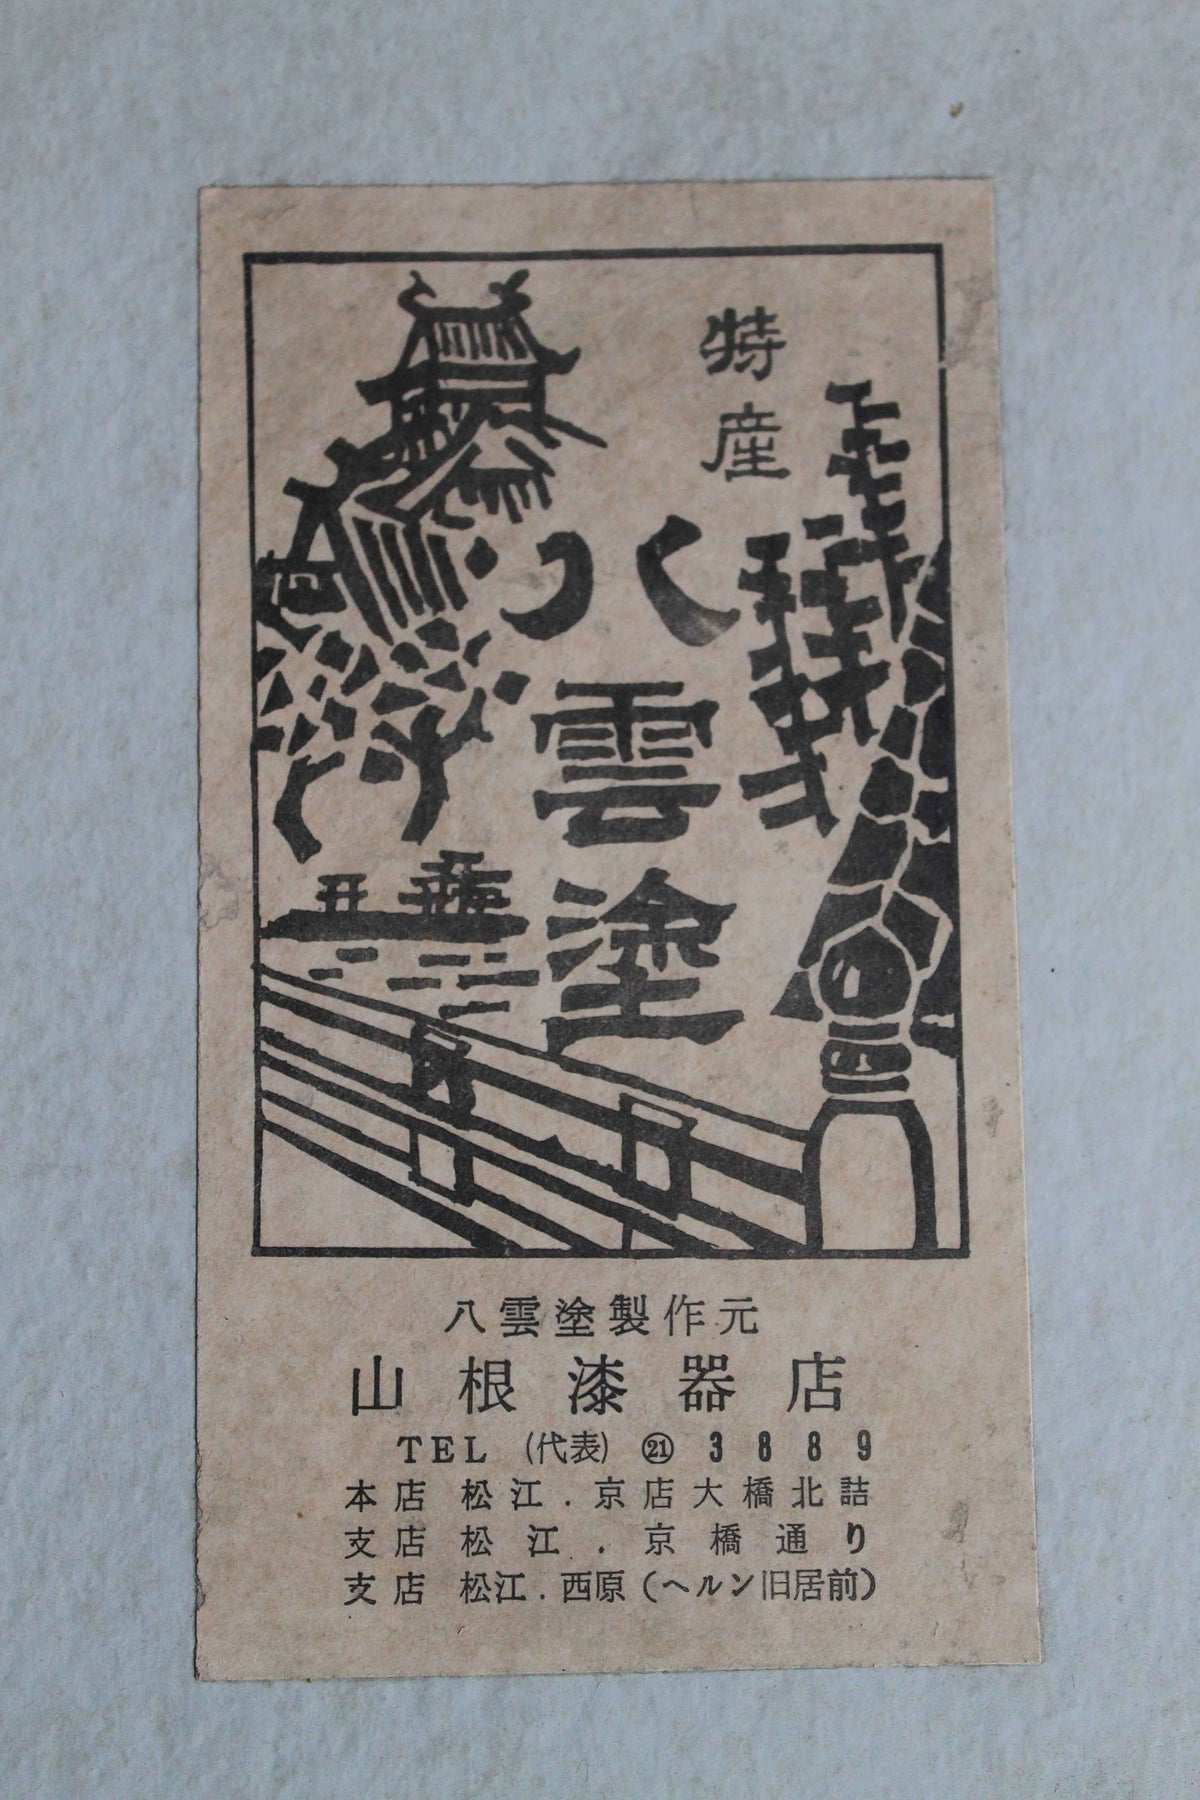 特産
八雲塗
八雲塗製作元
山根漆器店
TEL (代表) ㉑ 3889
本店 松江.京店大橋北詰
支店 松江.京橋通り
支店 松江.西原(ヘルン旧居前)